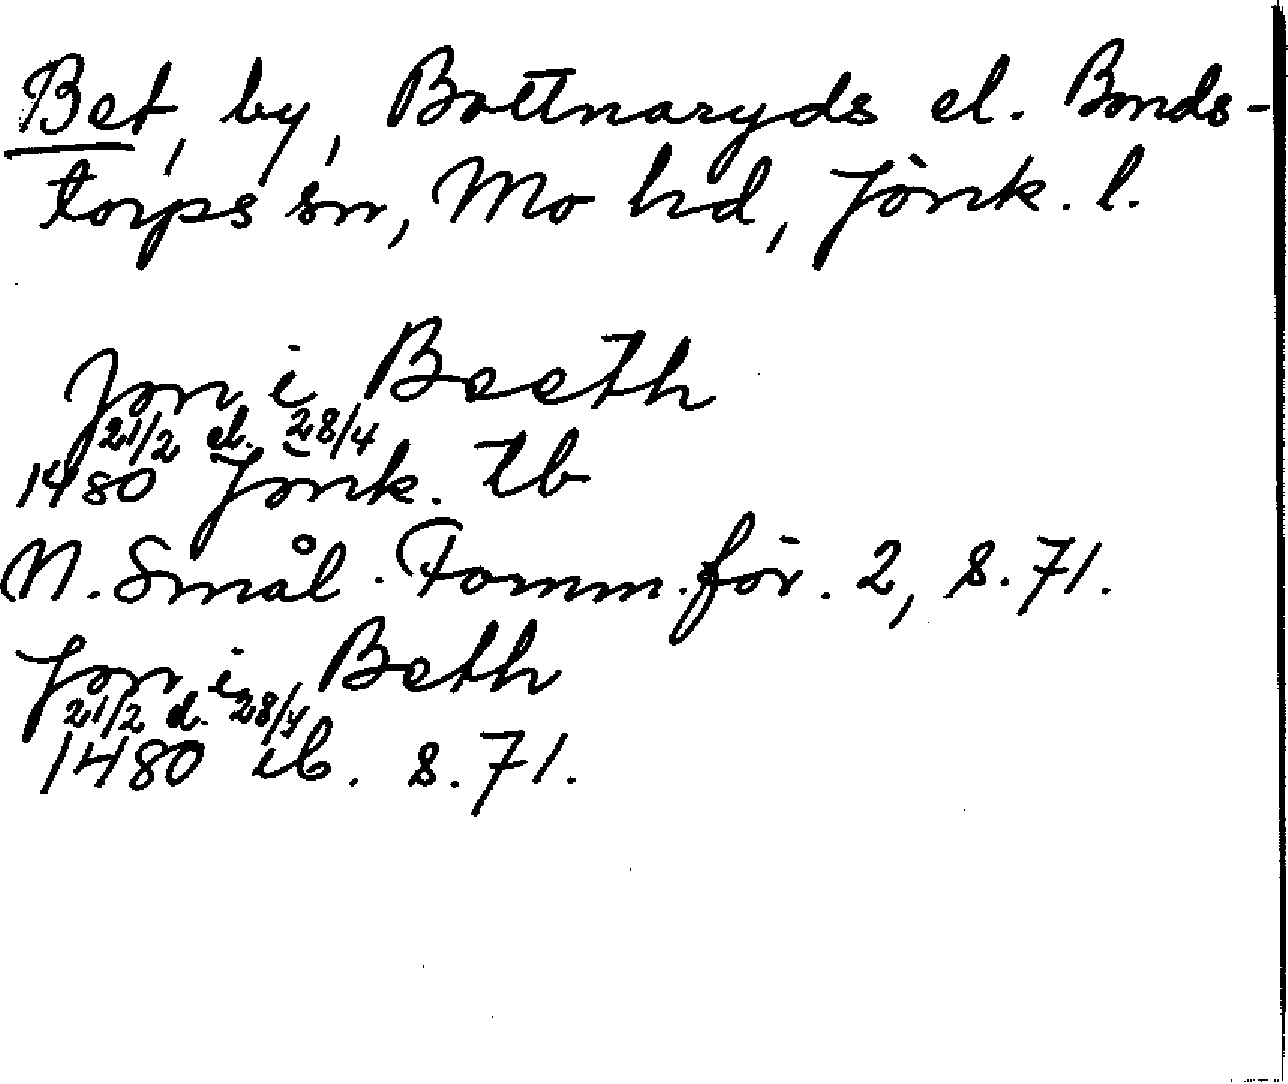 Bet, by, Bottnaryds el. Bonds-
torps sn, Mo hd, Jönk. l.
Jon i Beeth
21/2 el. 28/4
1480 Jönk. tb
N. Smål. Fornm.för. 2, s. 71.
Jon i Beth
21/2 el. 28/4
1480 ib. s. 71.